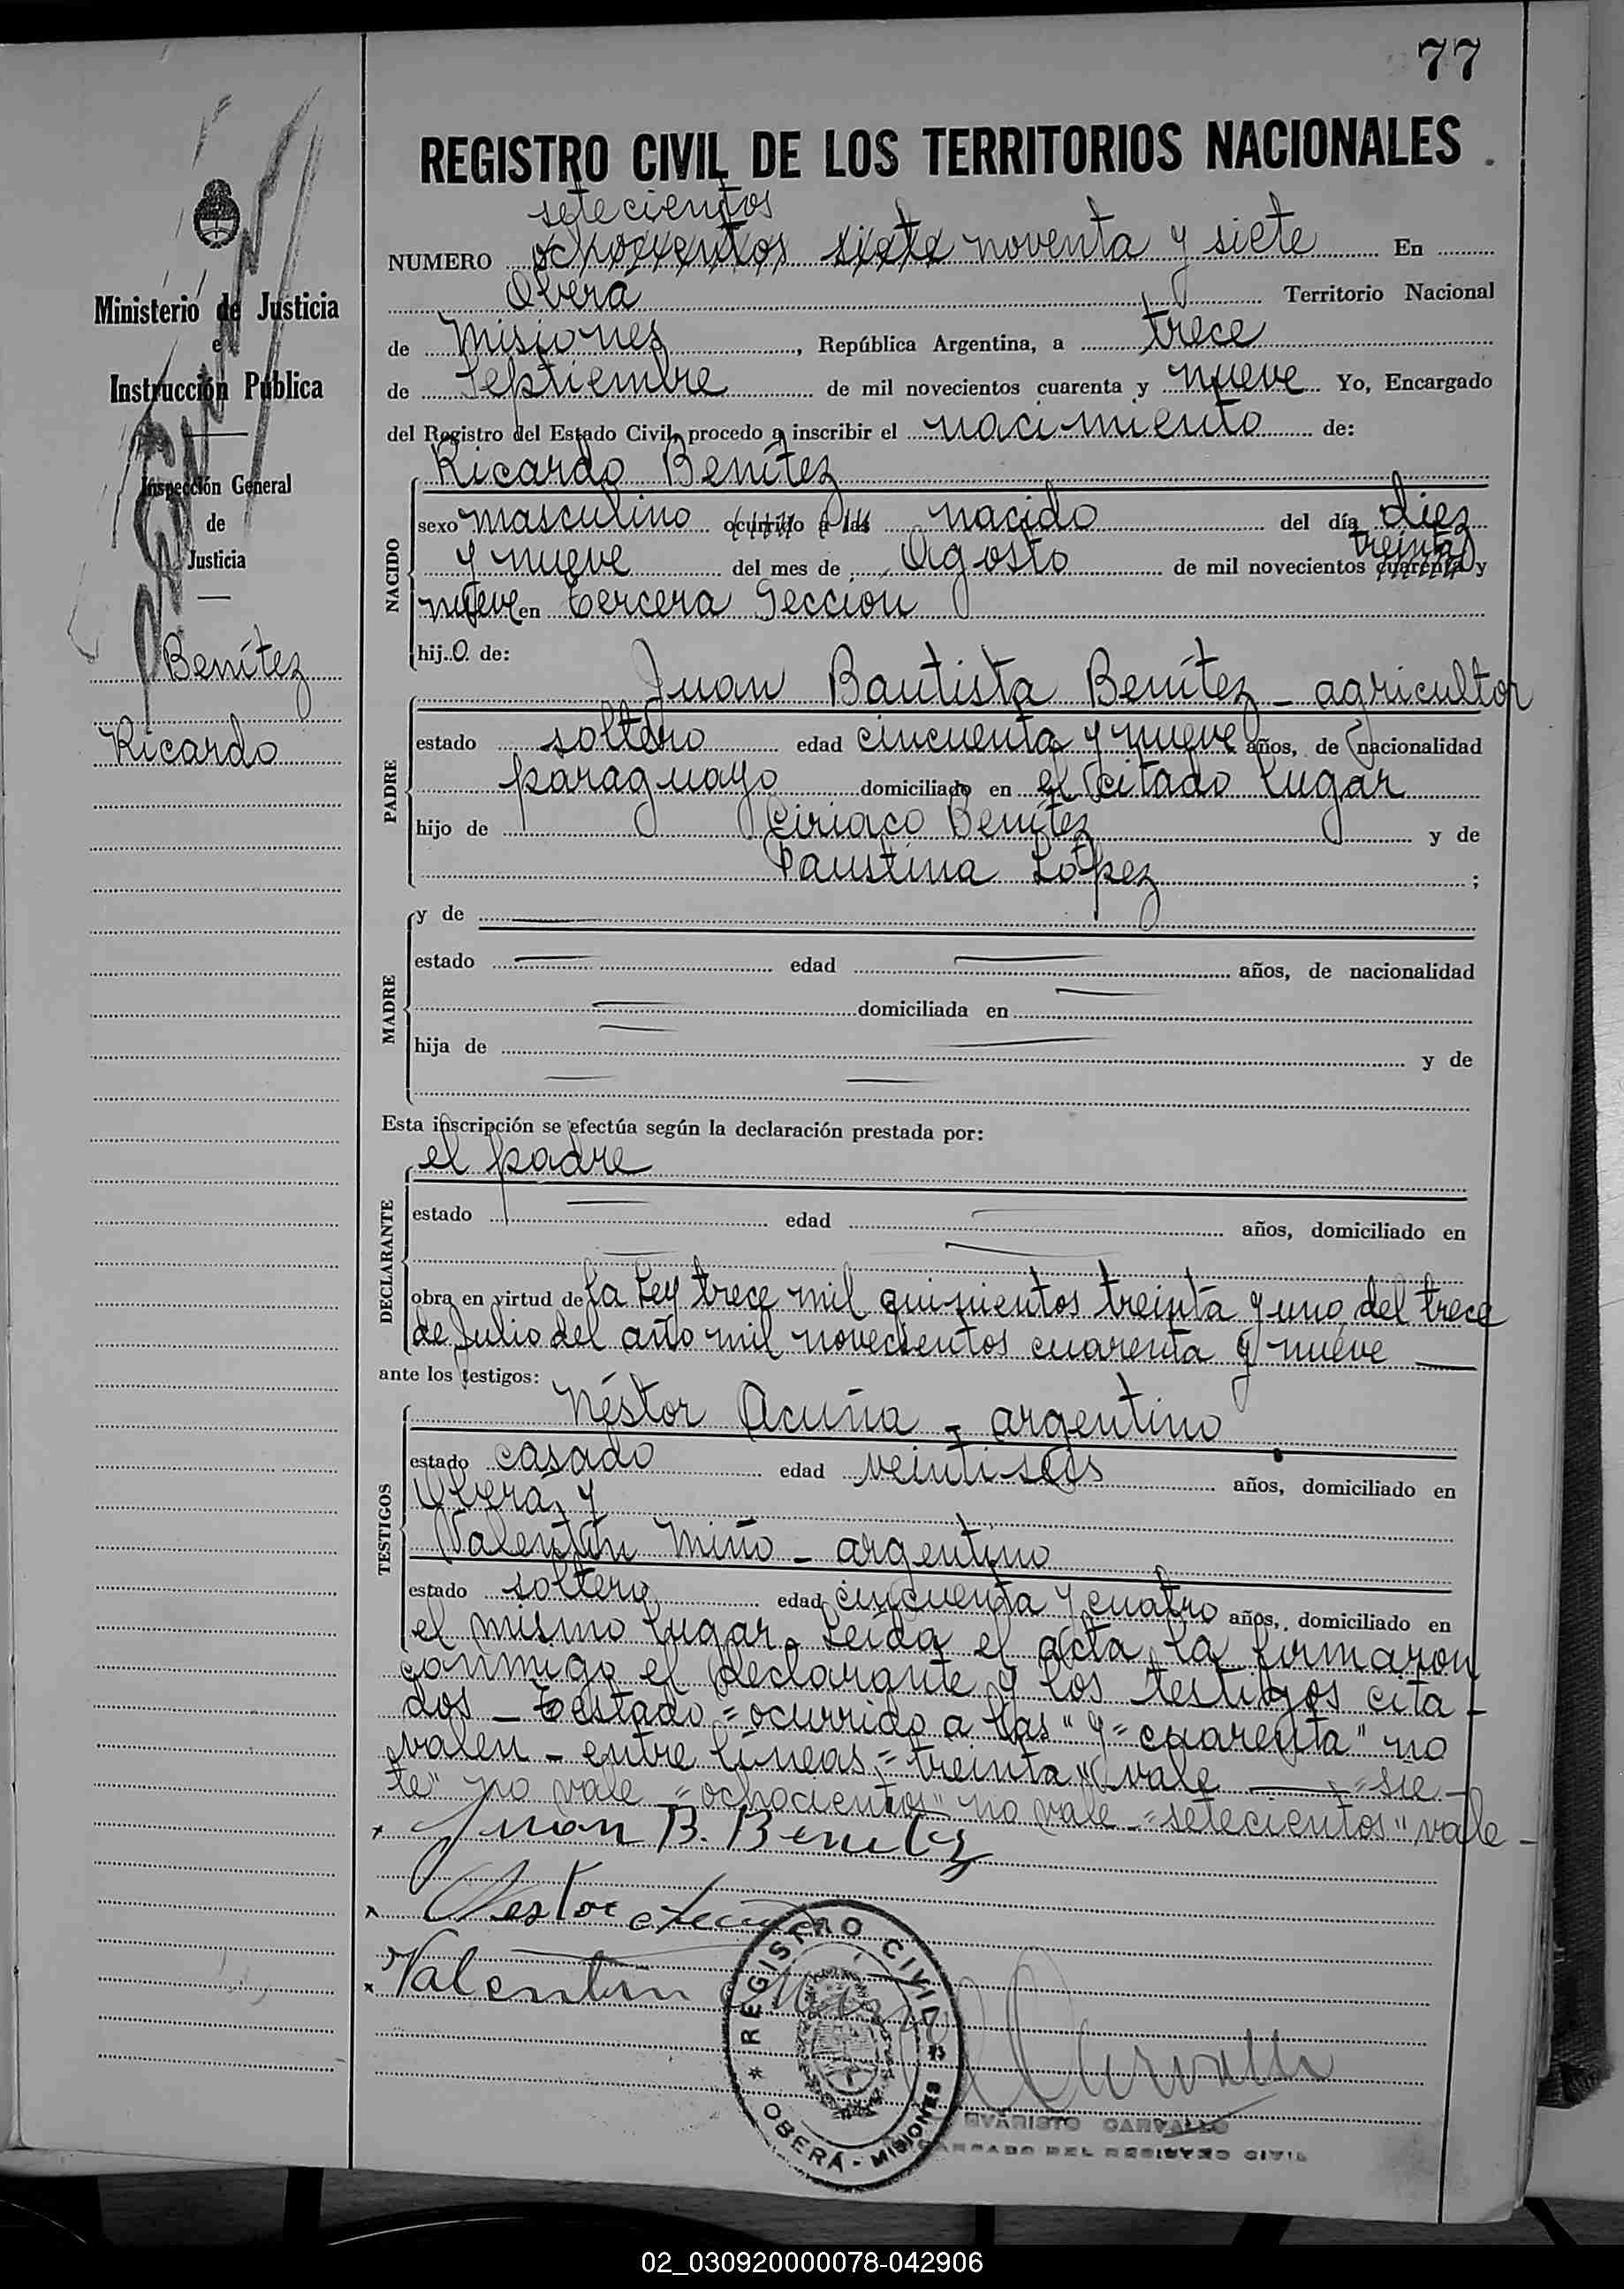 77
REGISTRO CIVIL DE LOS TERRITORIOS NACIONALES
setecientos
NUMERO ochocientos siete noventa y siete En
Oberá Territorio Nacional
de Misiones, República Argentina, a trece
de Septiembre de mil novecientos cuarenta y nueve Yo, Encargado
del Registro del Estado Civil, procedo a inscribir el nacimiento de:
Ricardo Benítez
NACIDO
sexo masculino ocurrido a las nacido del día diez
treinta
y nueve del mes de Agosto de mil novecientos cuarenta y
nueve en tercera Seccion
hijo de:
Juan Bautista Benítez - agricultor
PADRE
estado soltero edad cincuenta y nueve años, de nacionalidad
paraguayo domiciliado en el citado lugar
hijo de Ciriaco Benítez y de
Faustina López ;
MADRE
y de
estado edad años, de nacionalidad
domiciliada en
hija de y de
Esta inscripción se efectúa según la declaración prestada por:
DECLARANTE
el padre
estado edad años, domiciliado en
obra en virtud de la Ley trece mil quinientos treinta y uno del trece
de Julio del año mil novecientos cuarenta y nueve
ante los testigos:
TESTIGOS
Néstor Acuña - argentino
estado casado edad veintiseis años, domiciliado en
Oberá y
Valentín Miño - argentino
estado soltero edad cincuenta y cuatro años, domiciliado en
el mismo lugar. Leída el acta la firmaron
conmigo el declarante y los testigos cita-
dos - Testado = ocurrido a las" y = cuarenta" no
valen - entre líneas = treinta" vale = sie-
te" no vale = ochocientos" no vale = setecientos" vale -
x Juan B. Benitez
x Nestor Acuña
x Valentin Miño
Carvallo
REGISTRO CIVIL
* OBERÁ - MISIONES *
EVARISTO CARVALLO
ENCARGADO DEL REGISTRO CIVIL
Ministerio de Justicia
e
Instrucción Pública
Inspección General
de
Justicia
Benítez
Ricardo
02_030920000078-042906